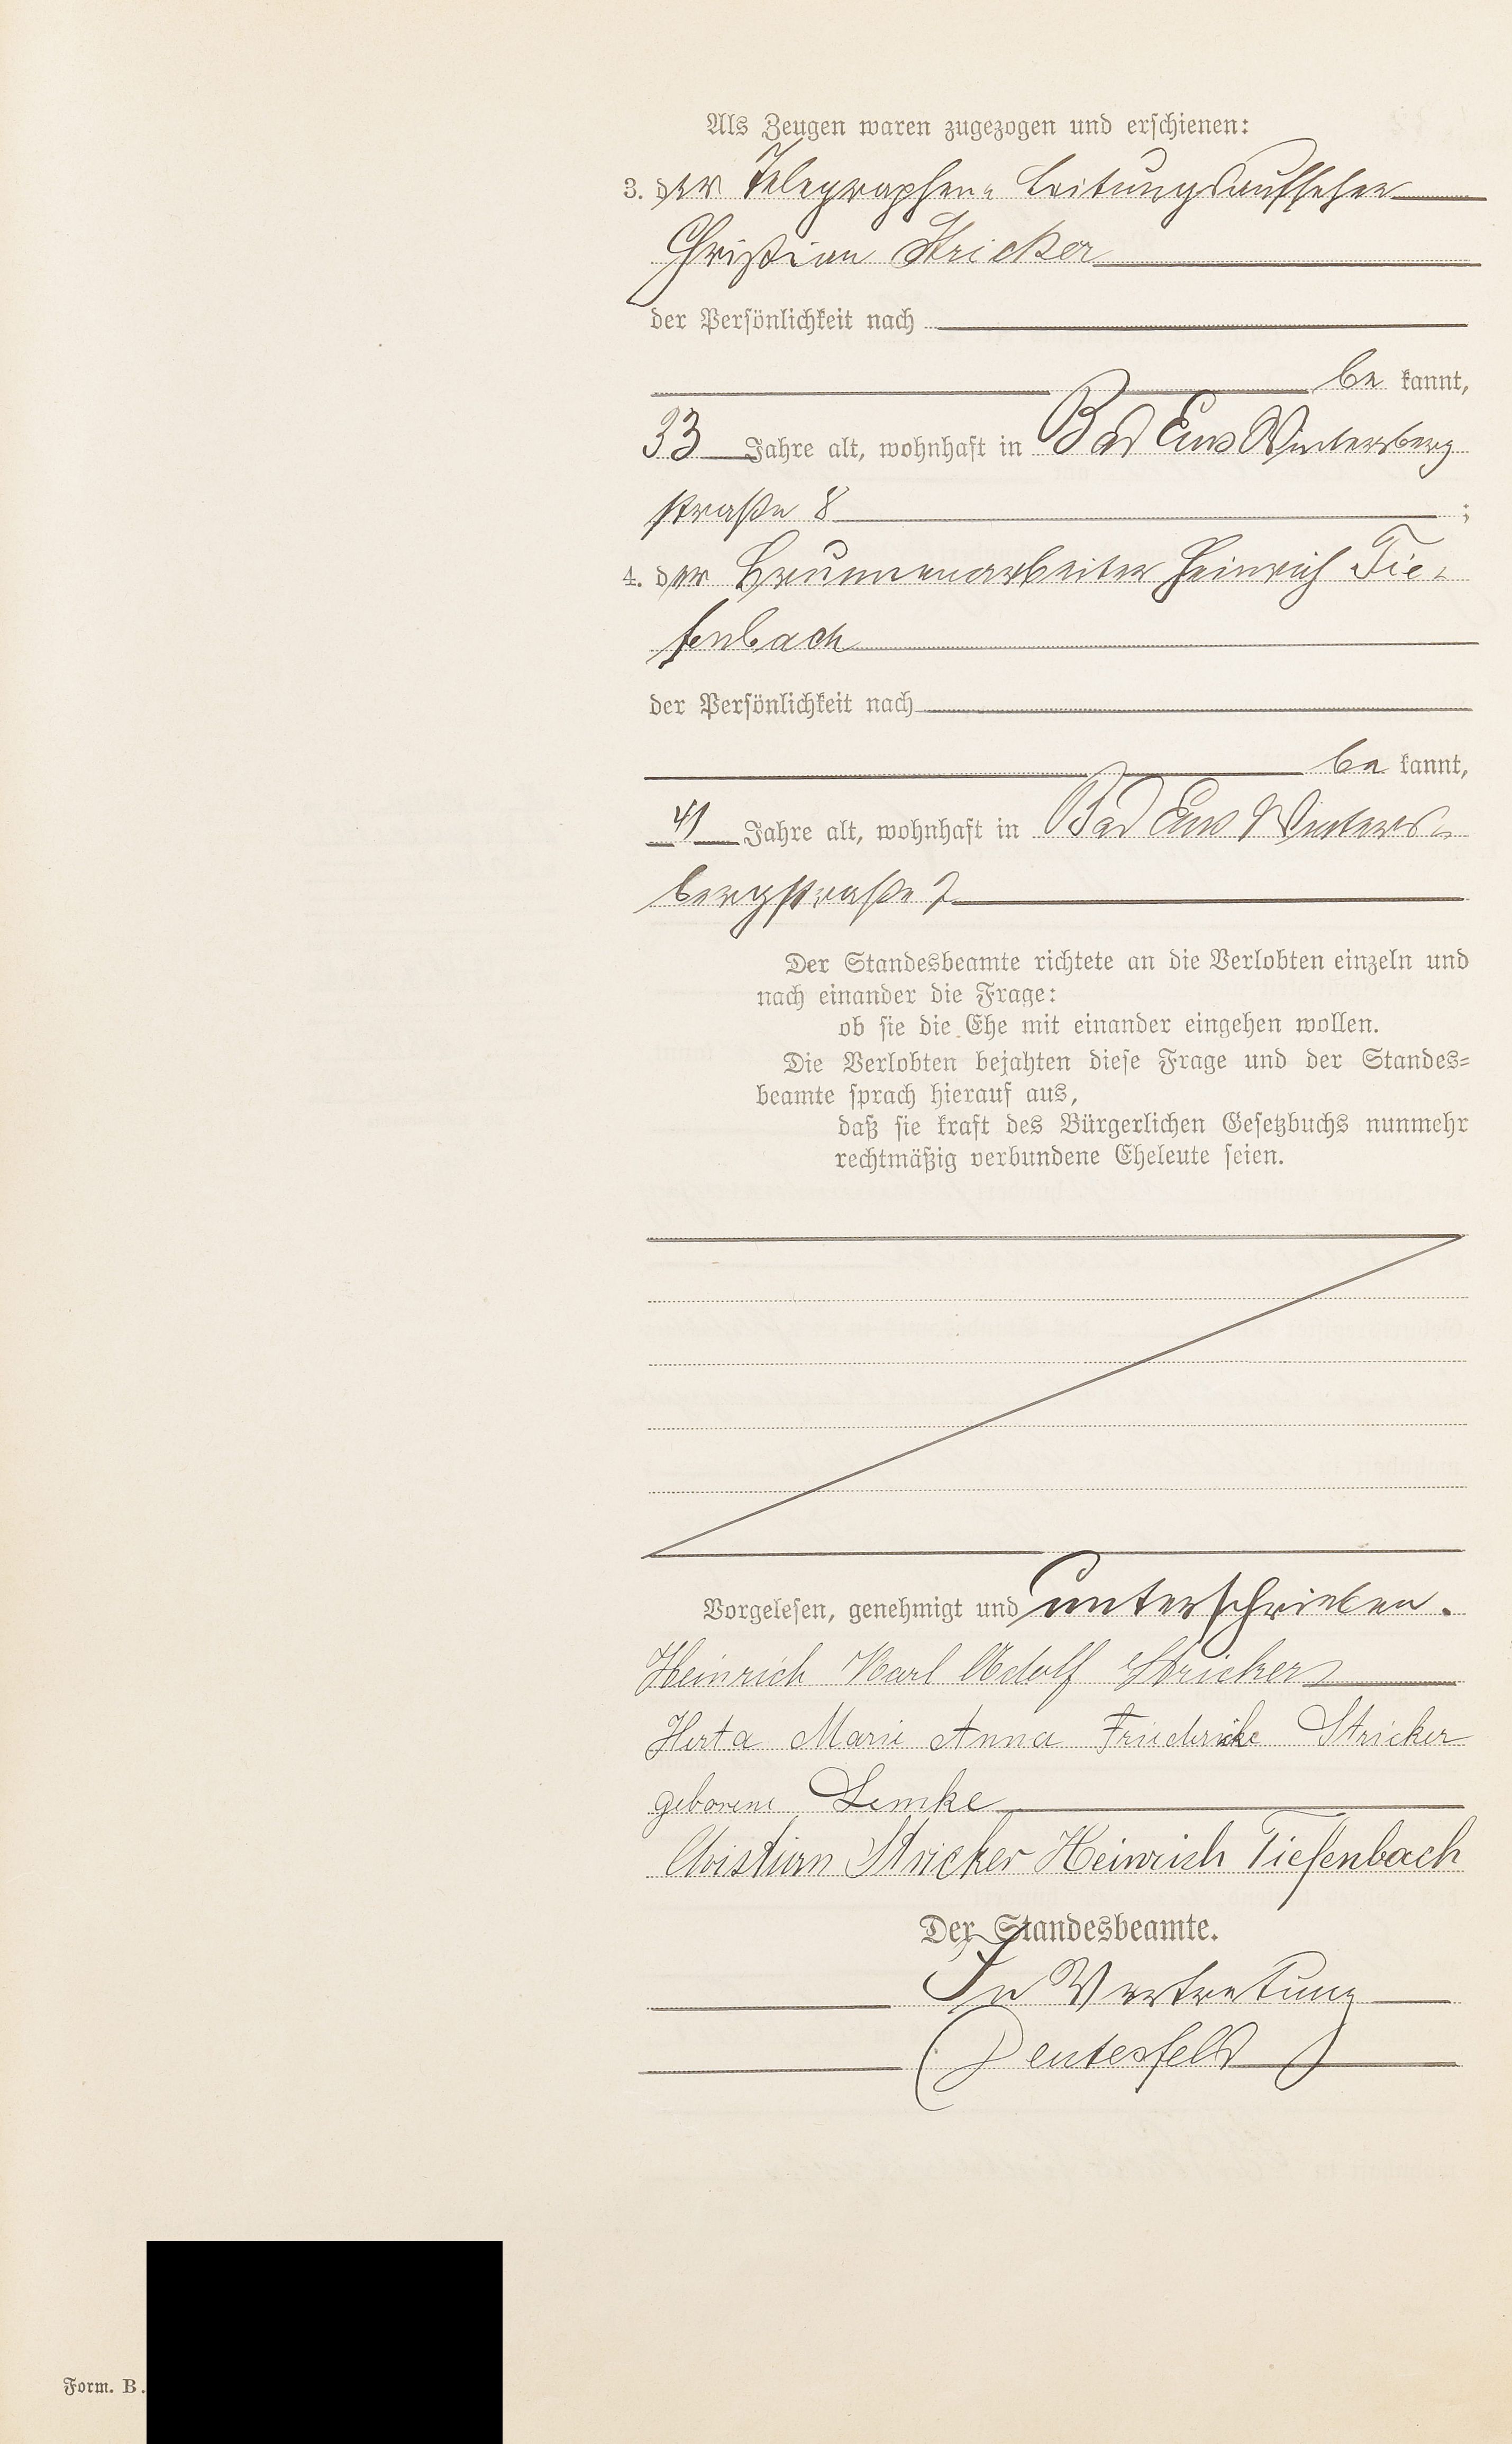 Als Zeugen waren zugezogen und erschienen:
3. der Telegraphen- Leitungsaufseher
Christian Stricker
der Persönlichkeit nach
be kannt,
33 Jahre alt, wohnhaft in Bad Ems Wintersberg
straße 8 ;
4. der Brunnenarbeiter Heinrich Tie-
fenbach
der Persönlichkeit nach
be kannt,
41 Jahre alt, wohnhaft in Bad Ems Winters-
bergstraße 7
Der Standesbeamte richtete an die Verlobten einzeln und
nach einander die Frage:
ob sie die Ehe mit einander eingehen wollen.
Die Verlobten bejahten diese Frage und der Standes=
beamte sprach hierauf aus,
daß sie kraft des Bürgerlichen Gesetzbuchs nunmehr
rechtmäßig verbundene Eheleute seien.
Vorgelesen, genehmigt und unterschrieben.
Heinrich Karl Adolf Stricker
Herta Marie Anna Friederike Stricker
geborene Lemke
Christian Stricker Heinrich Tiefenbach
Der Standesbeamte.
In Vertretung
Deutesfeld
Form. B.